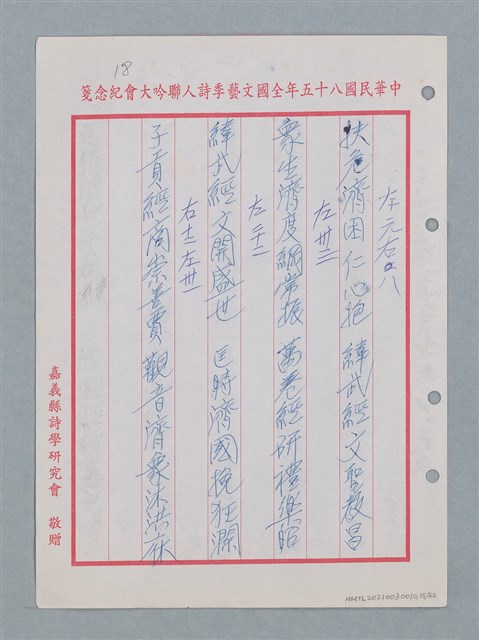 18
中華民國八十五年全國文藝季詩人聯吟大會紀念箋
左元右08
扶危濟困仁心抱 緯武經文聖教昌
左卅二
眾生濟度綱常振 萬卷經研禮樂昭
左二十二
緯武經文開盛世 匡時濟國挽狂瀾
右十二左卅一
子貢經商崇善賈 觀音濟眾沐洪庥
嘉義縣詩學研究會 敬贈